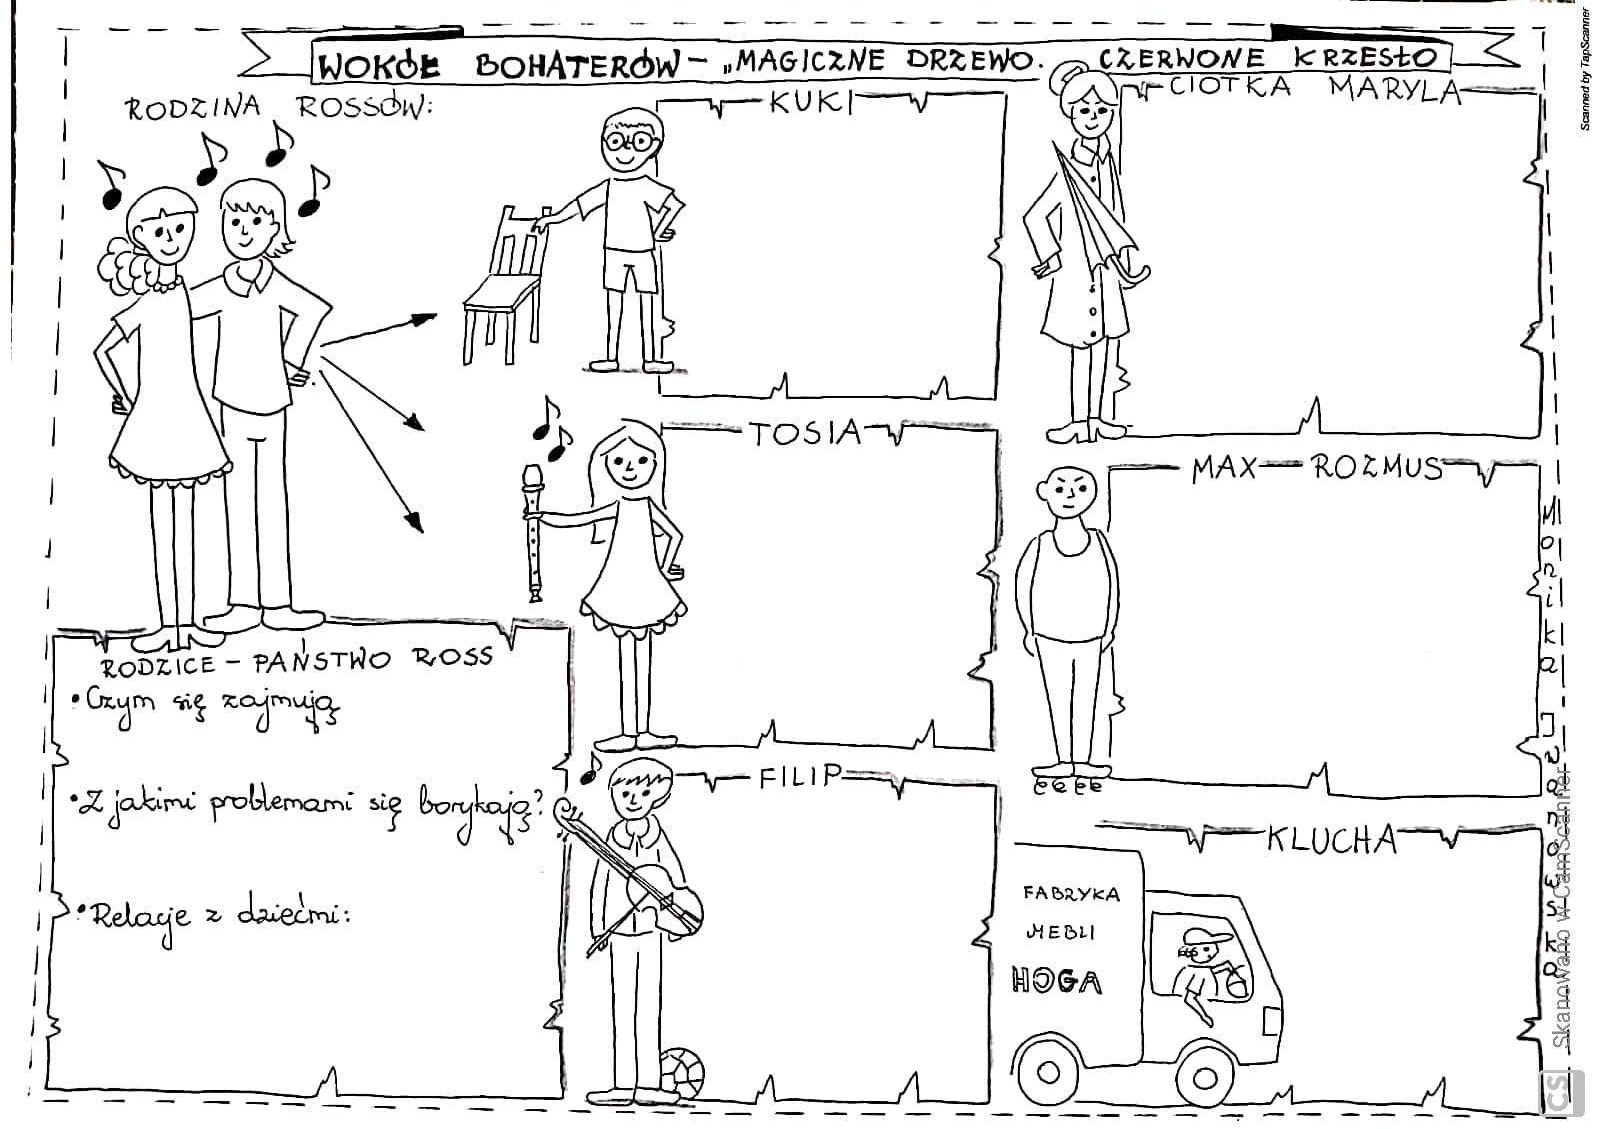 WOKÓŁ BOHATERÓW - „MAGICZNE DRZEWO. CZERWONE KRZESŁO
RODZINA ROSSÓW:
KUKI
CIOTKA MARYLA
TOSIA
MAX ROZMUS
RODZICE - PAŃSTWO ROSS
• Czym się zajmują
• Z jakimi problemami się borykają?
• Relacje z dziećmi:
FILIP
KLUCHA
FABRYKA
MEBLI
HOGA
Monika
Skanowano w CamScanner
CS
Scanned by TapScanner